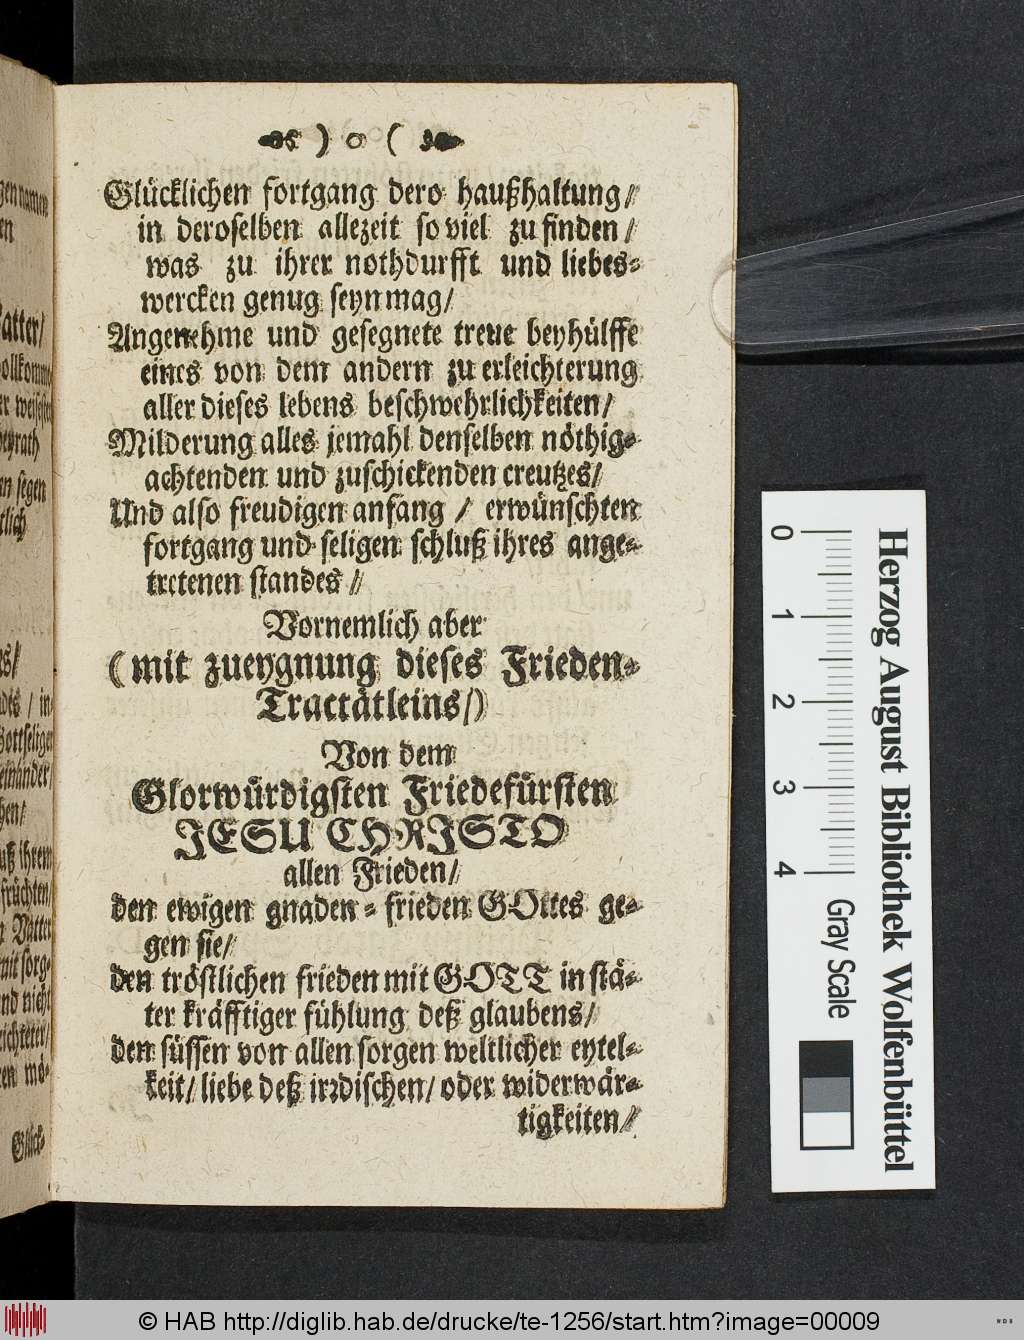 ) o (
Glücklichen fortgang dero haußhaltung/
in deroselben allezeit so viel zu finden/
was zu ihrer nothdurfft und liebes-
wercken genug seyn mag/
Angenehme und gesegnete treue beyhülffe
eines von dem andern zu erleichterung
aller dieses lebens beschwehrlichkeiten/
Milderung alles jemahl denselben nöthig-
achtenden und zuschickenden creutzes/
Und also freudigen anfang / erwünschten
fortgang und seligen schluß ihres ange-
tretenen standes //
Vornemlich aber
(mit zueygnung dieses Frieden-
Tractätleins/)
Von dem
Glorwürdigsten Friedefürsten
JESU CHRISTO
allen Frieden/
den ewigen gnaden-frieden GOttes ge-
gen sie/
den tröstlichen frieden mit GOTT in stä-
ter kräfftiger fühlung deß glaubens/
den süssen von allen sorgen weltlicher eytel-
keit/ liebe deß irrdischen/ oder widerwär-
tigkeiten/
gen namen
en
Vatter/
ollkomm
er weisesten
beyrath
en segen
tlich
ns/
des / in-
Gottseligen
einander/
hen/
uß ihrem
früchten/
n Vatter
mit sorg-
nd nicht
eichterter/
en mö-
Glück-
Herzog August Bibliothek Wolfenbüttel
0 1 2 3 4
Gray Scale
© HAB http://diglib.hab.de/drucke/te-1256/start.htm?image=00009